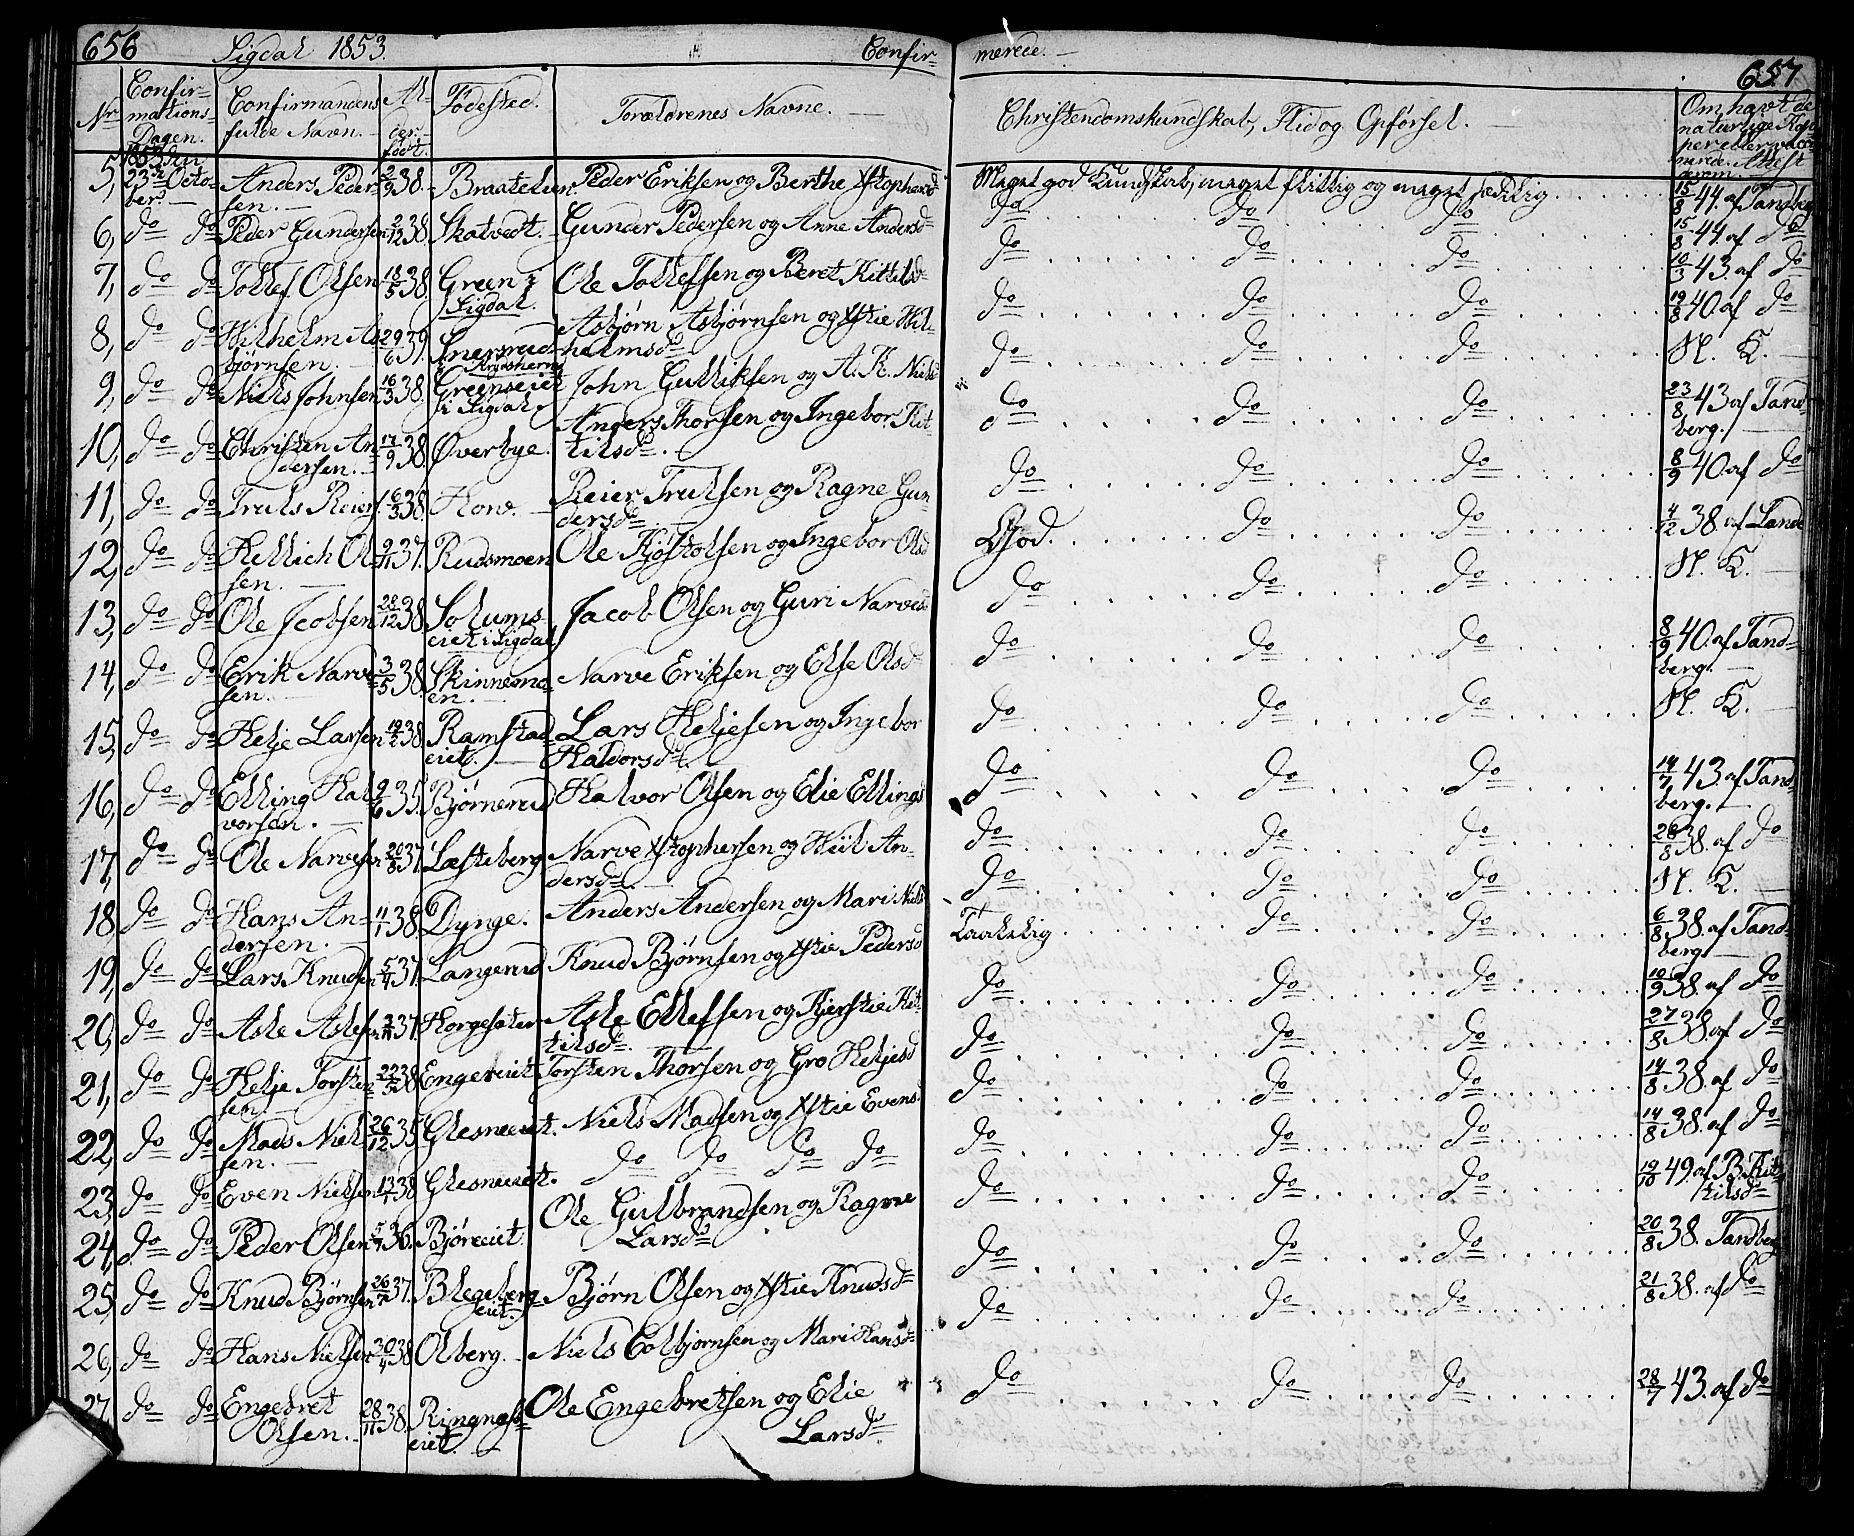 656 Sigdal 1853. Confir-
merede. — 657
Nr. Confir-mations-Dagen. Confirmandens fulde Navn. Al-der. født. Fødested. Forældrenes Navne. Christendomskundskab, Flid og Opførsel. Om havt de naturlige Kop-per eller vacci-nerede. Attest
5, 23de Octo-ber. Anders Peder-sen. 38. Braatelien Peder Eriksen og Berthe Xstophersd Meget god Kundskab, meget flittig og meget sædelig 15/8 44. af Tandberg
6, do do Peder Gundersen 2/12 38. Skatvedt. Gunder Pedersen og Anne Andersd do do do 15/8 44. af do
7, do do Tollef Olsen 18/5 38. Green i Sigdal. Ole Tollefsen og Beret Kittilsd do do do 10/3 43. af do
8, do do Wilhelm As-bjørnsen. 29/6 39. Snersrud Asbjørn Asbjørnsen og Xstie Wil-helmsd do do do 19/8 40. af do
9, do do Niels Johnsen 16/3 38. Greenseiet i Sigdal. John Gulliksen og A. K. Nielsd do do do N. K.
10, do do Christen An-dersen. 17/9 38. Øverbye. Anders Thorsen og Ingebor Kit-tilsd. do do do 23/8 43 af Tand-berg.
11, do do Truls Reiers 6/3 38. Hove. Reier Trulsen og Ragne Gun-dersd. do do do 8/9 40. af do
12, do do Hellich Ol-sen. 9/11 37. Rudsmoen Ole Kjøstolsen og Ingebor Olsd God. do do 4/12 38. af Lande
13, do do Ole Jcobsen 28/12 38. Solums-eiet i Sigdal Jacob Olsen og Guri Narvesd do do do N. K.
14, do do Erik Narve-sen. 3/5 38. Skinnesmo-en. Narve Eriksen og Else Olsd do do do 8/9 40. af Tand-berg.
15, do do Helje Larsen 19/2 38. Ramstad-eiet. Lars Heljesen og Ingebor Haldorsd. do do do N. K.
16, do do Elling Hal-vorsen. 9/6 35. Bjørnerud Halvor Olsen og Elie Ellingsd do do do 14/7 43. af Tand-berg.
17, do do Ole Narvesen 20/8 37. Læsteberg Narve Xstophersen og Wiil An-dersd. do do do 28/8 38. af do
18 do do Hans An-dersen. 11/1 38. Dynge. Anders Andersen og Mari Nielsd do do do N. K.
19, do do Lars Knudsen 5/4 37. Langerud Knud Bjørnsen og Xstie Pedersd Taalelig do do 6/8 38. af Tand-berg.
20, do do Asle Aslesen 37. Horgesæter Asle Ellefsen og Kjerstie Kit-tilsd. do do do 19/9 38. af do
21, do do Helje Torsten-sen. 22/5 38. Engereiet Torsten Thorsen og Gro Heljesd do do do 27/8 38. af do
22, do do Mads Niel-sen. 26/12 35. Glesneeiet. Niels Madsen og Xstie Evensd do do do 14/8 38. af do
23, do do Even Nielsen 38. Glesneeiet. do do do do do do do 14/8 38. af do
24, do do Peder Olsen 36. Bjøreeiet. Ole Gulbrandsen og Ragne Larsd do do do 19/10 49. af B. Kit-tilsd
25, do do Knud Bjørnsen 37. Blegeberg-eiet. Bjørn Olsen og Xstie Knudsd do do do 20/8 38. Tandberg
26, do do Hans Nielsen 30/4 38. Olberg. Niels Colbjørnsen og Mari Hansd do do do 21/8 38. af do
27, do do Engebret Olsen. 28/11 38. Ringnæs-eiet. Ole Engebretsen og Elie Larsd. do do do 28/7 43. af do